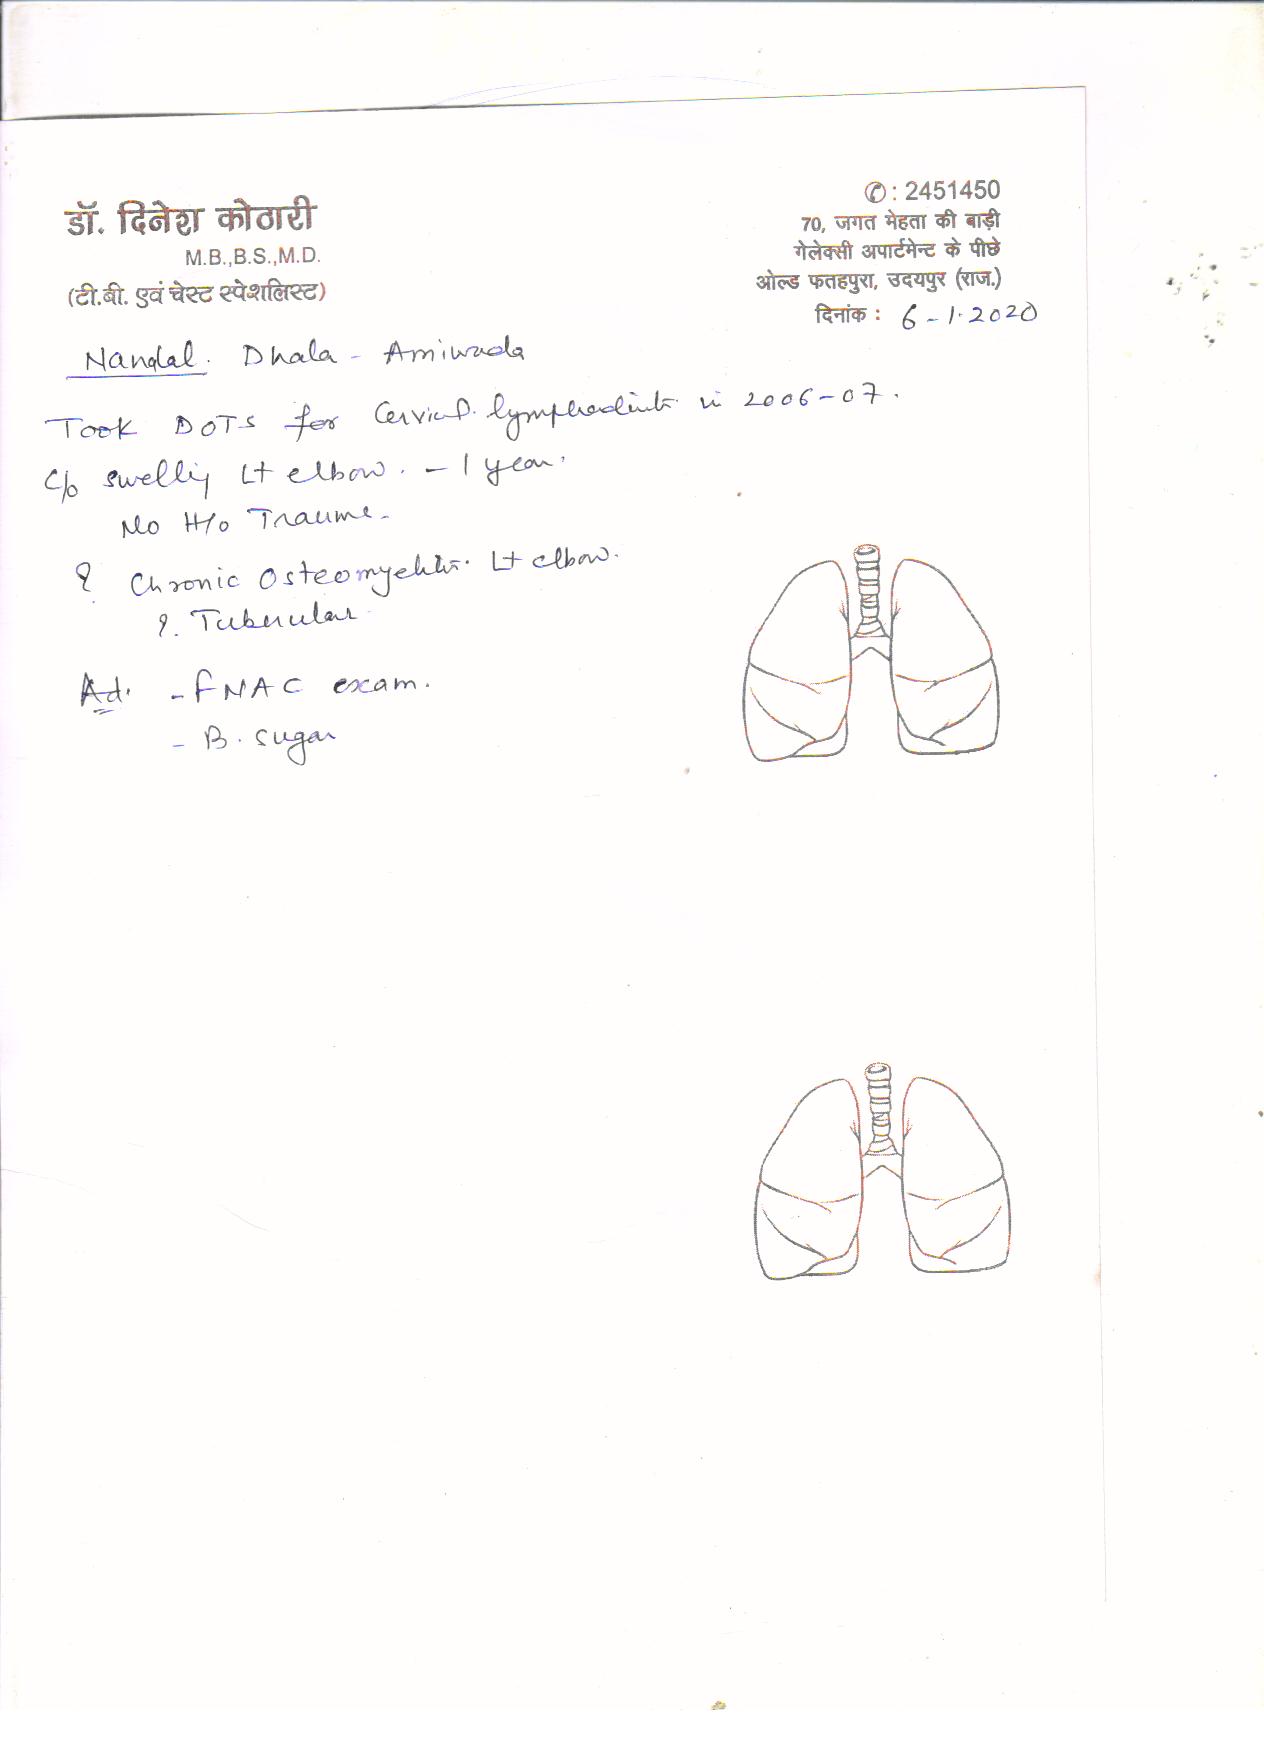 ✆ : 2451450
डॉ. दिनेश कोठारी
M.B.,B.S.,M.D.
(टी.बी. एवं चेस्ट स्पेशलिस्ट)
70, जगत मेहता की बाड़ी
गेलेक्सी अपार्टमेन्ट के पीछे
ओल्ड फतहपुरा, उदयपुर (राज.)
दिनांक : 6-1-2020
Dhala - Amiwada
Took DOTS for in 2006-07.
C/o swelling Lt elbow. - 1 year.
No H/o Trauma.
? Chronic Osteomyelitis. Lt elbow.
?. Tubercular
Ad. - FNAC exam.
- B. sugar